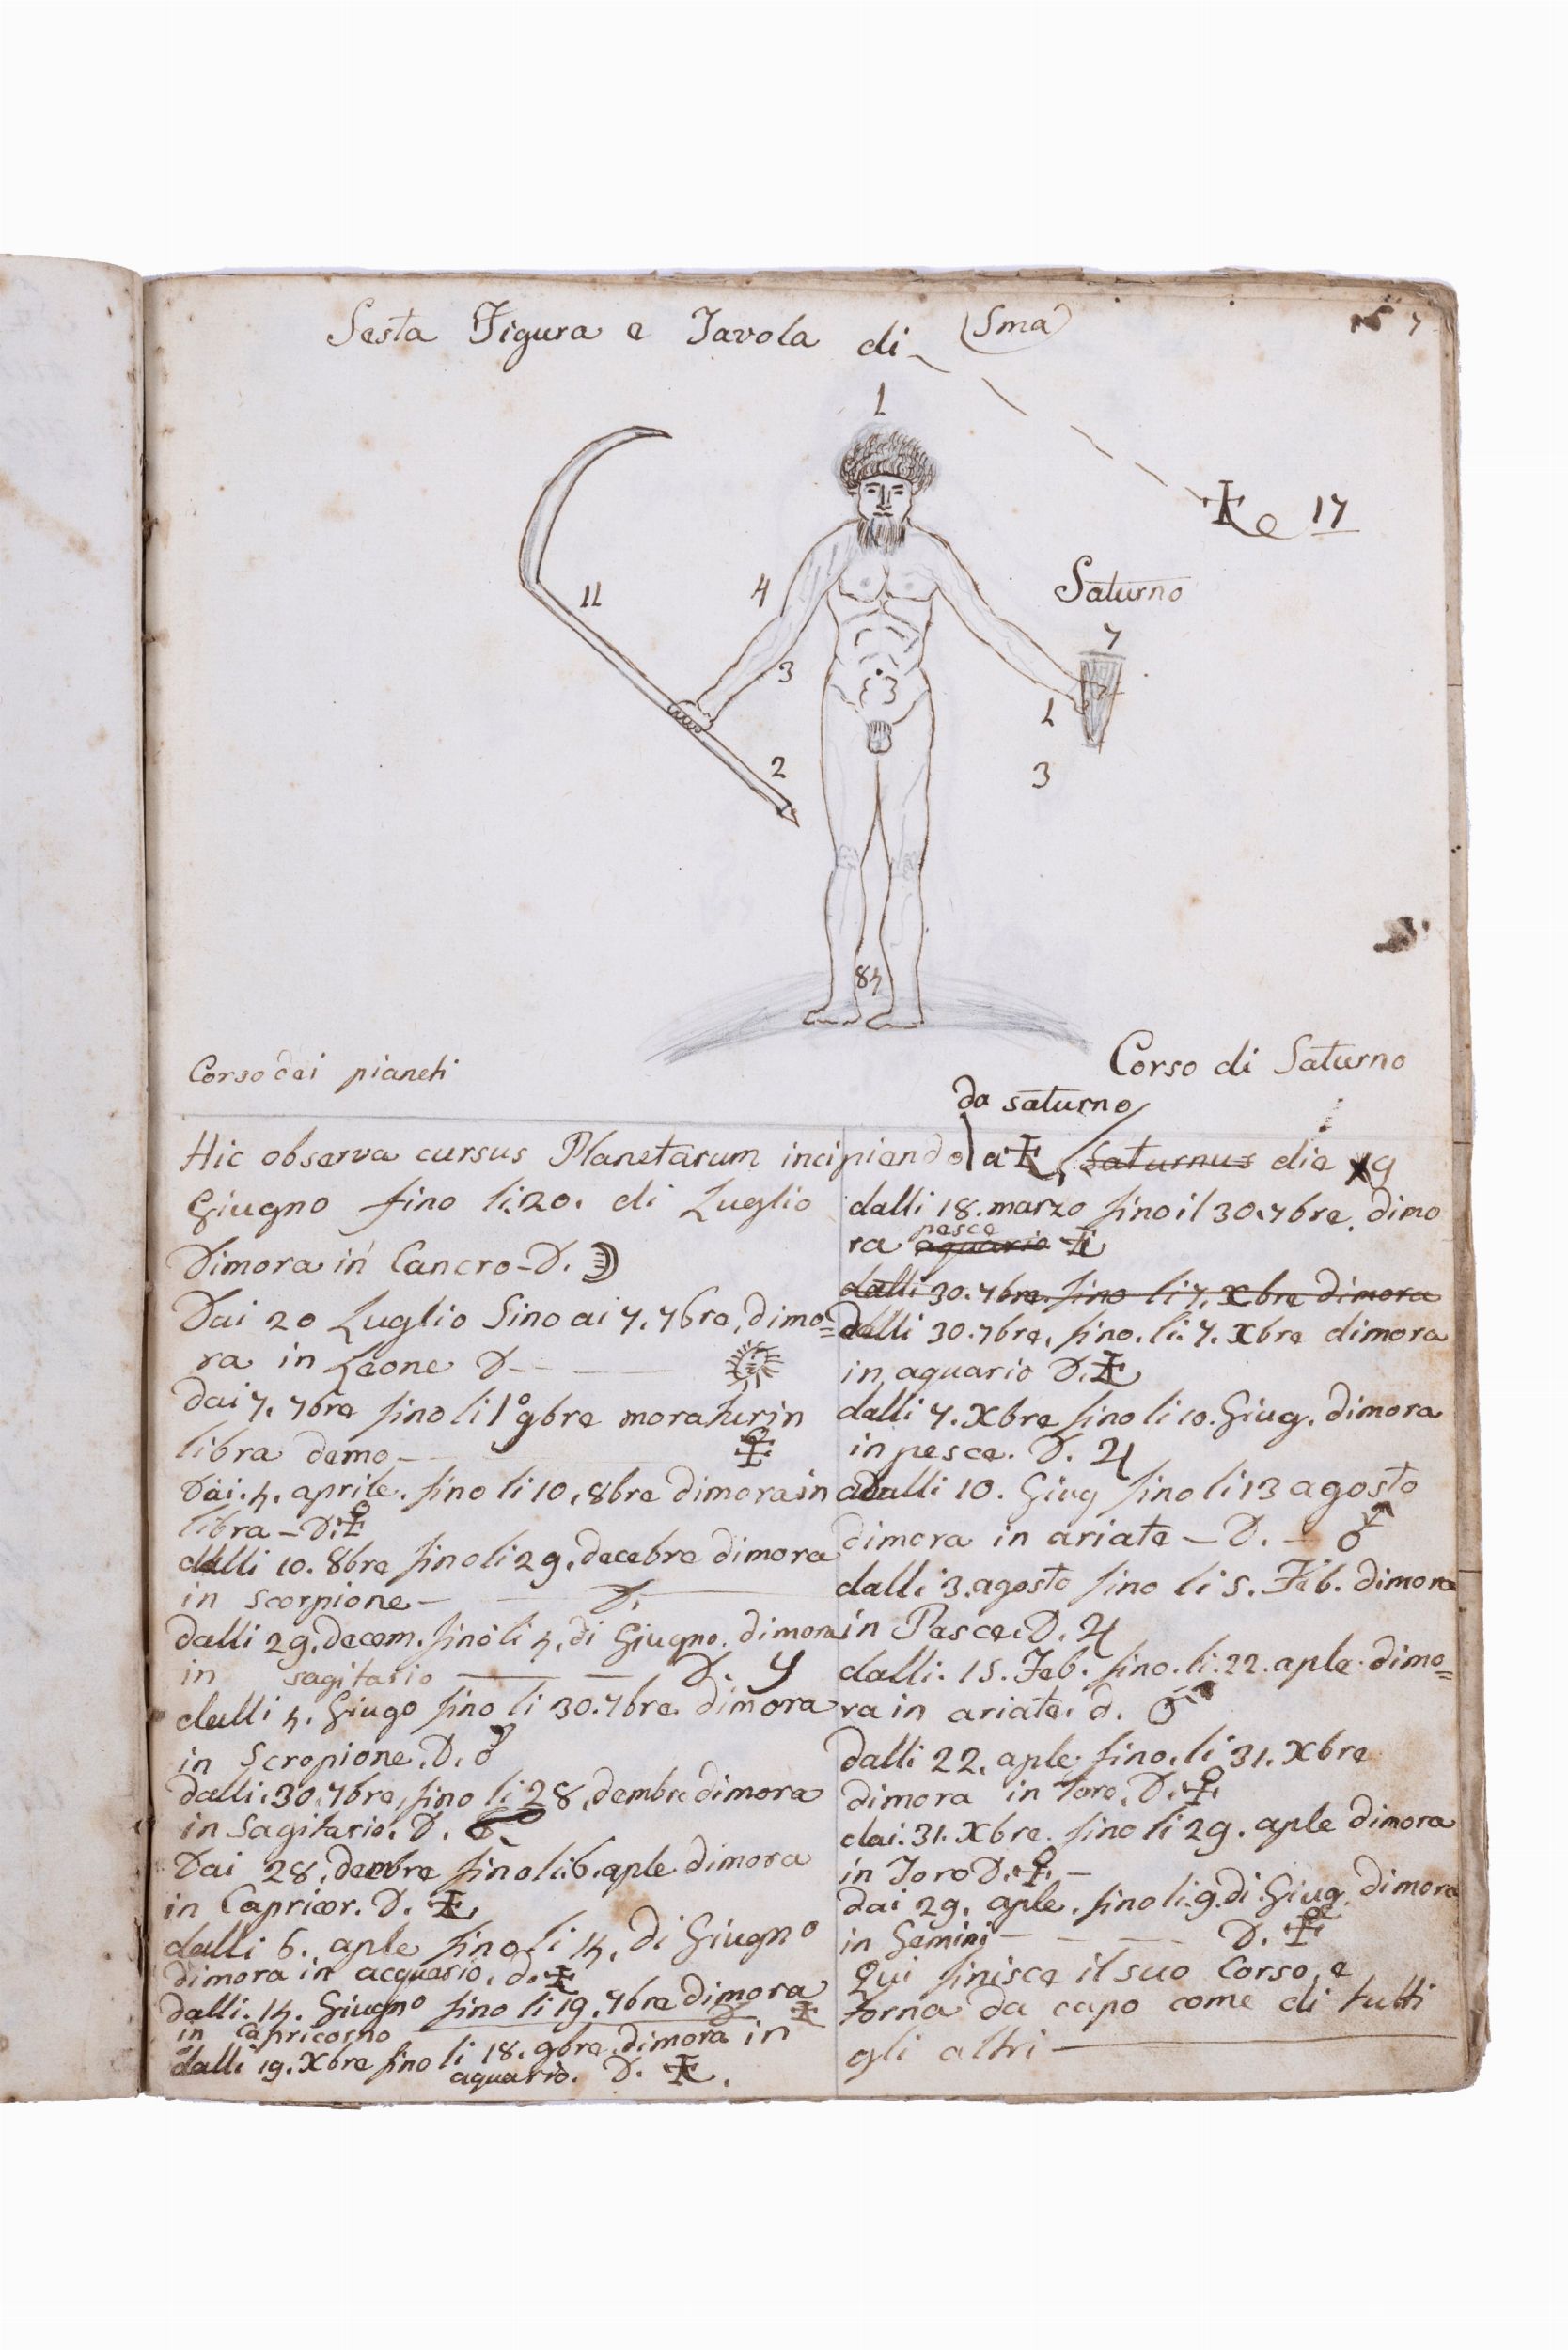 Sesta Figura e Tavola di Sma
7
1
♄ e 17
11
4
Saturno
7
3
3
1
2
3
84
Corso dei pianeti
Corso di Saturno
da saturno
Hic observa cursus Planetarum incipiendo a ♄ Saturnus die 9
Giugno fino li 20. di Luglio
Dimora in Cancro - D. ☽
Dai 20 Luglio Sino ai 7. 7bre, dimo=
ra in Leone D - ☉
dai 7. 7bre fino li 1° 9bre moratur in
libra domo - ♀
Dai. 4. aprile. fino li 10. 8bre dimora in
libra - D. ♀
dalli 10. 8bre fino li 29. decebre dimora
in scorpione - D.
dalli 29. decem. fino li 4. di Giugno. dimora
in sagitario - D. ♃
dalli 4. Giugo fino li 30. 7bre. dimora
in Scropione. D. ♂
dalli. 30. 7bre, fino li 28. dembre dimora
in Sagitario. D.
Dai 28. dembre fino li 6. aple dimora
in Capricor. D. ♄
dalli 6. aple fino li 14. di Giugno
dimora in acquario. d. ♄
dalli. 14. Giugno fino li 19. 7bre dimora
in Capricorno D ♄
dalli 19. Xbre fino li 18. 9bre. dimora in
aquario. D. ♄.
dalli 18. marzo fino il 30. 7bre. dimo
pesce
ra aquario ♄
dalli 30. 7bre. fino li 7. Xbre dimora
dalli 30. 7bre, fino. li. 7. Xbre dimora
in aquario D. ♄
dalli 7. Xbre fino li 10. Giug. dimora
in pesce. D. ♃
dalli 10. Giug fino li 13 agosto
dimora in ariate - D. - ♂
dalli 3. agosto fino li 5. Feb. dimora
in Pasce. D. ♃
dalli. 15. Feb. fino. li. 22. aple. dimo=
ra in ariate. d. ♂
dalli 22. aple. fino. li 31. Xbre
dimora in Toro. D. ♀
dai. 31. Xbre. fino li 29. aple dimora
in Toro D. ♀ -
dai 29. aple. fino li. 9. di Giug. dimora
in Gemini - D. ☿
Qui finisce il suo Corso, e
torna da capo come di tutti
gli altri